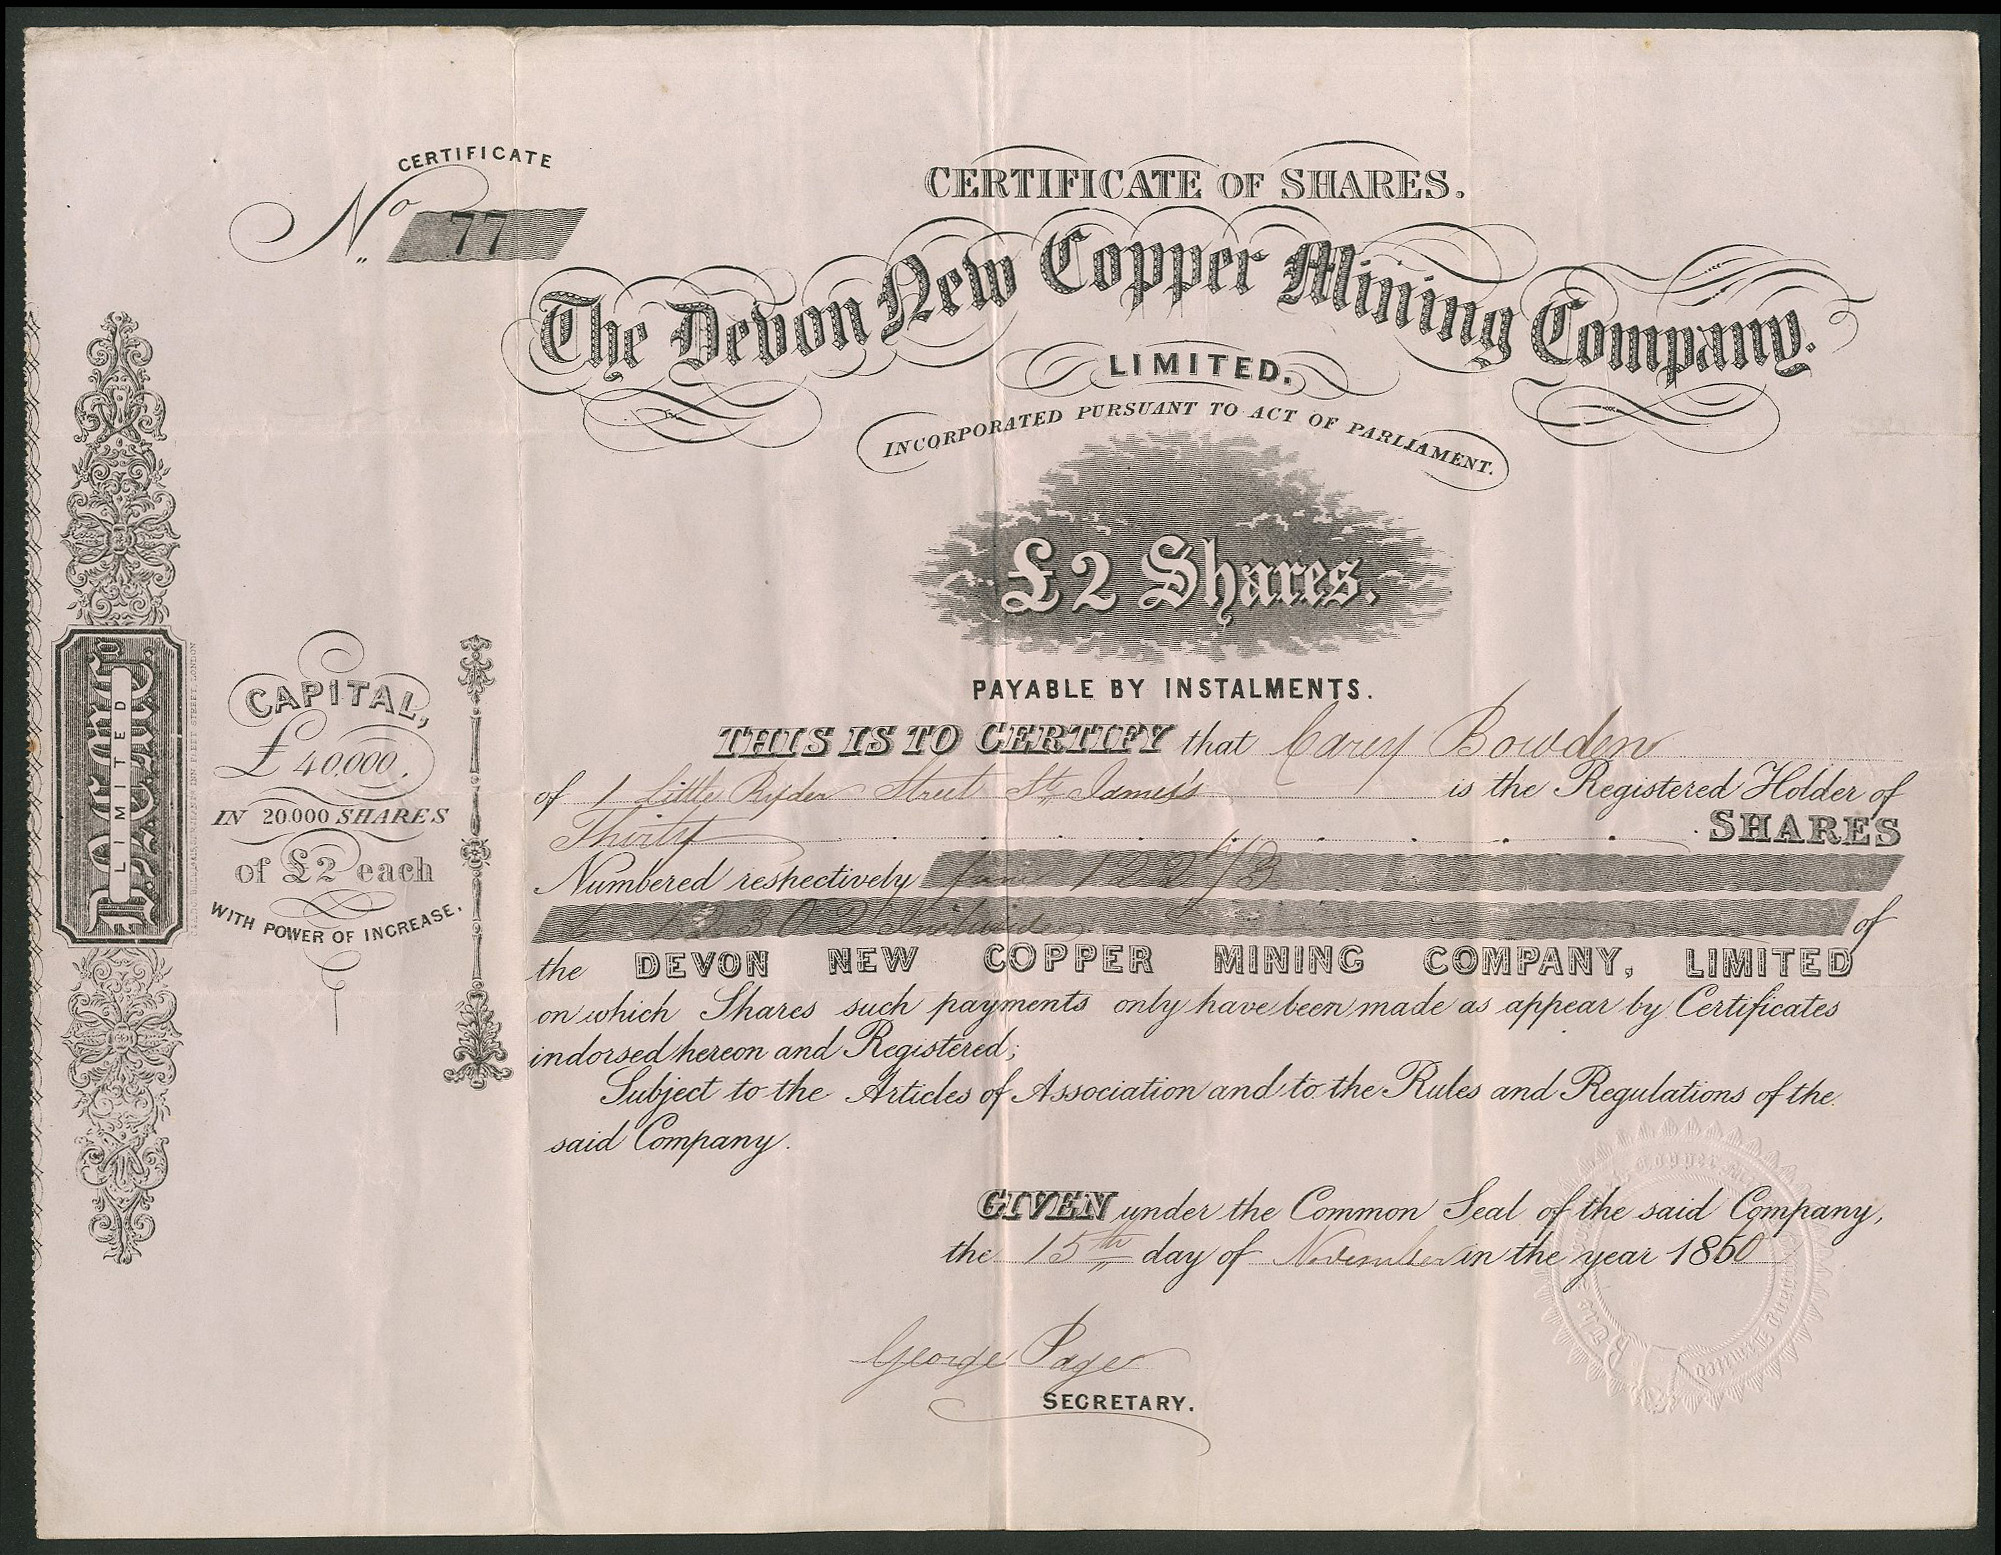 CERTIFICATE
No 77
CERTIFICATE OF SHARES.
The Devon New Copper Mining Company.
LIMITED.
INCORPORATED PURSUANT TO ACT OF PARLIAMENT.
£2 Shares.
PAYABLE BY INSTALMENTS.
D.N.C.M.Co.
LIMITED
CAPITAL,
£40,000.
IN 20.000 SHARES
of £2 each
WITH POWER OF INCREASE.
THIS IS TO CERTIFY that Carey Bowden
of 1 Little Ryder Street St. James's is the Registered Holder of
Thirty SHARES
Numbered respectively from 12273
to 12302 Inclusive of
the DEVON NEW COPPER MINING COMPANY, LIMITED
on which Shares such payments only have been made as appear by Certificates
indorsed hereon and Registered;
Subject to the Articles of Association and to the Rules and Regulations of the
said Company.
GIVEN under the Common Seal of the said Company,
the 15th day of November in the year 1860
George Page
SECRETARY.